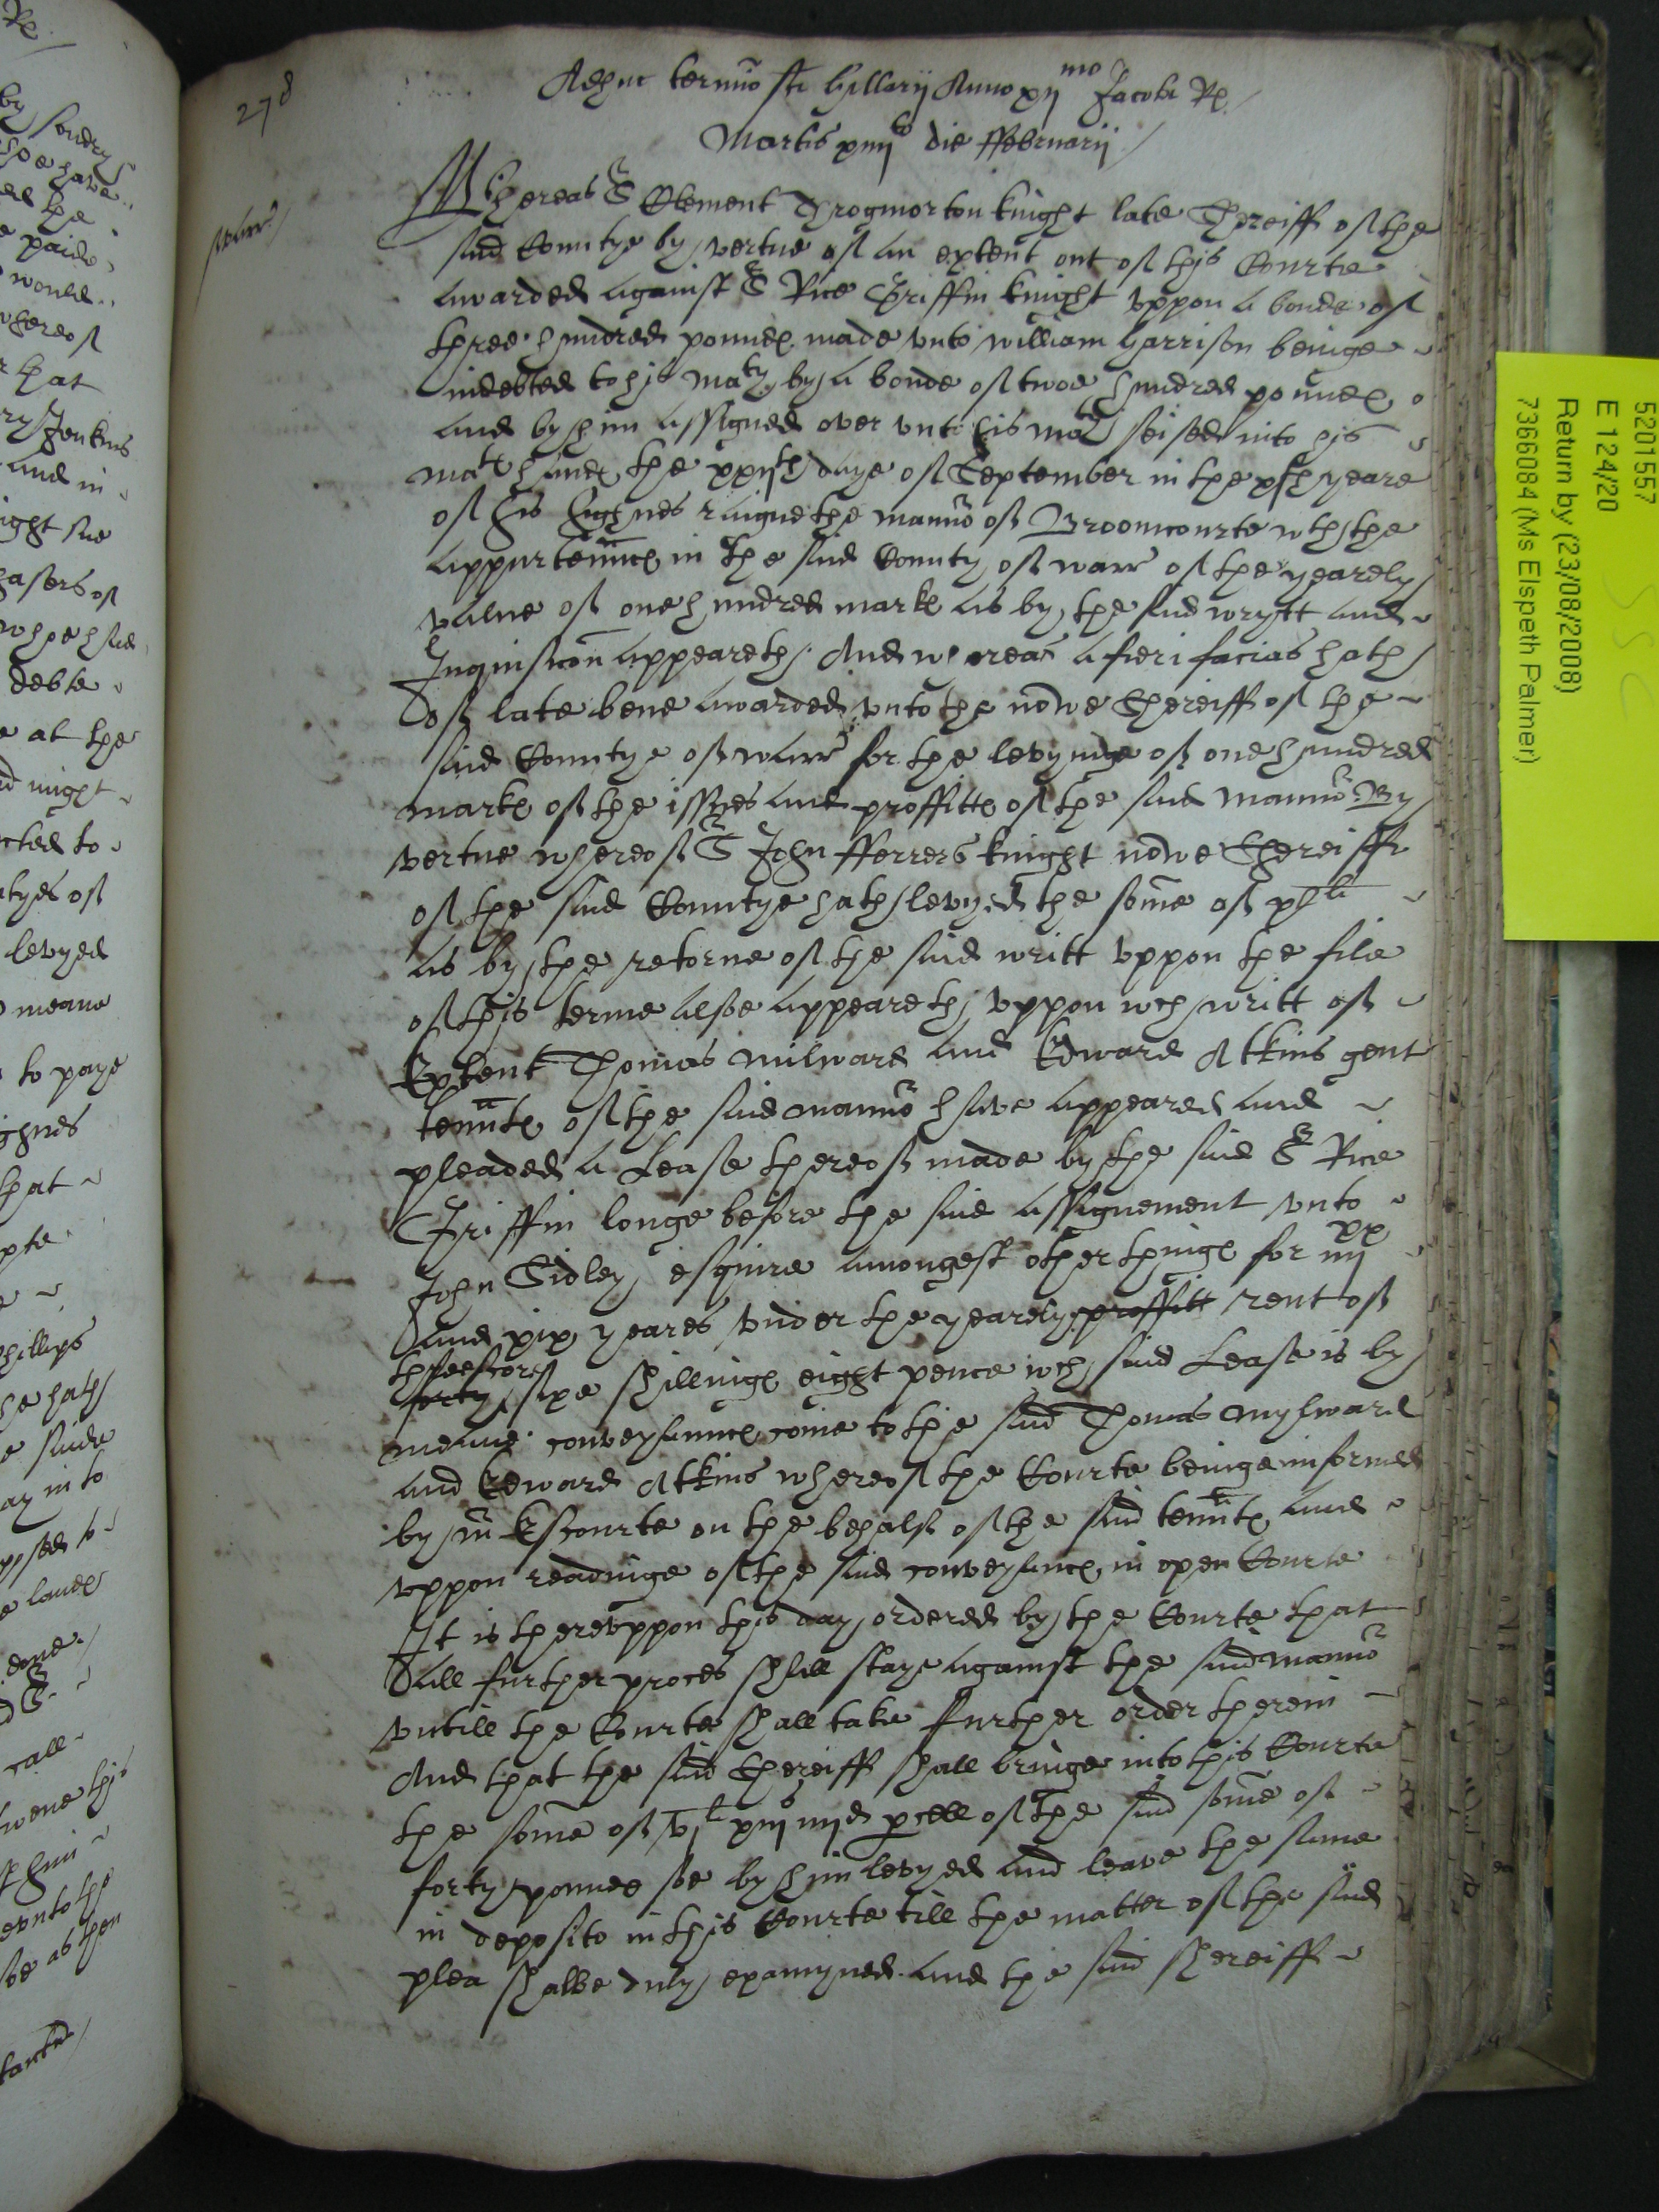 278
Adhuc termino sci Hillarij Anno xij mo Jacobi Rx
Martis xiiij to die ffebruarij
warr
Whereas Sr Clement Throgmorton knight late Shereiff of the
said Countye by vertue of an extent out of this Courte
awarded against Sr Rice Griffin knight vppon a bonde of
three hundred poundes made vnto william Harrison beinge
indebted to his maty by a bonde of twoe hundred poundes
and by him assigned over vnto his matie seised into his
mates handes the xxijth daye of September in the xjth yeare
of his highnes raigne the mannor of Broomcourte wth the
appurtennces in the said County of warr of the yearely
value of one hundred markes as by the said wrytt and
Inquisicon appeareth. And whereas a fieri facias hath
of late bene awarded vnto the nowe Shereiff of the
said Countye of warr for the levyinge of one hundred
markes of the issues and proffittes of the said mannor. By
vertue whereof Sr John fferrers knight nowe Shereiff
of the said Countye hath levyed the some of xlli
as by the retorne of the said writt vppon the file
of this terme alsoe appeareth, vppon wch writt of
Extent Thomas milward and Edward Atkins gent
tennts of the said mannor have appeared and
pleaded a Lease thereof made by the said Sr Rice
Griffin longe before the said assignement vnto
John Sidley esquire amongest other thinges for iiij xx
and xix yeares vnder the yearely proffitt rent of
threescore
forty sixe shillinges eight pence wch said Lease is by
meane conveyaunces come to the said Thomas mylward
and Edward Atkins whereof the Courte beinge informed
by mr Escourte on the behalf of the said tennts and
vppon readinge of the said conveyances in open Courte
It is therevppon this day ordered by the Courte that
all further proces shall staye against the said mannor
vntill the Courte shall take further order therein
And that the said Shereiff shall bringe into this Courte
the some of vjl xiijs iiijd pcell of the said some of
forty poundes soe by him levyed and leave the same
in deposito in this Courte till the matter of the said
plea shalbe duly examyned. and the said shereiff
by sondry
paide
would
whereof
that
Jenkins
and in
debte
at the
might
levyed
meane
to paye
that
hillips
he hath
call
5201557
E 124/20
Return by (23/08/2008)
7366084 (Ms Elspeth Palmer)
SSC